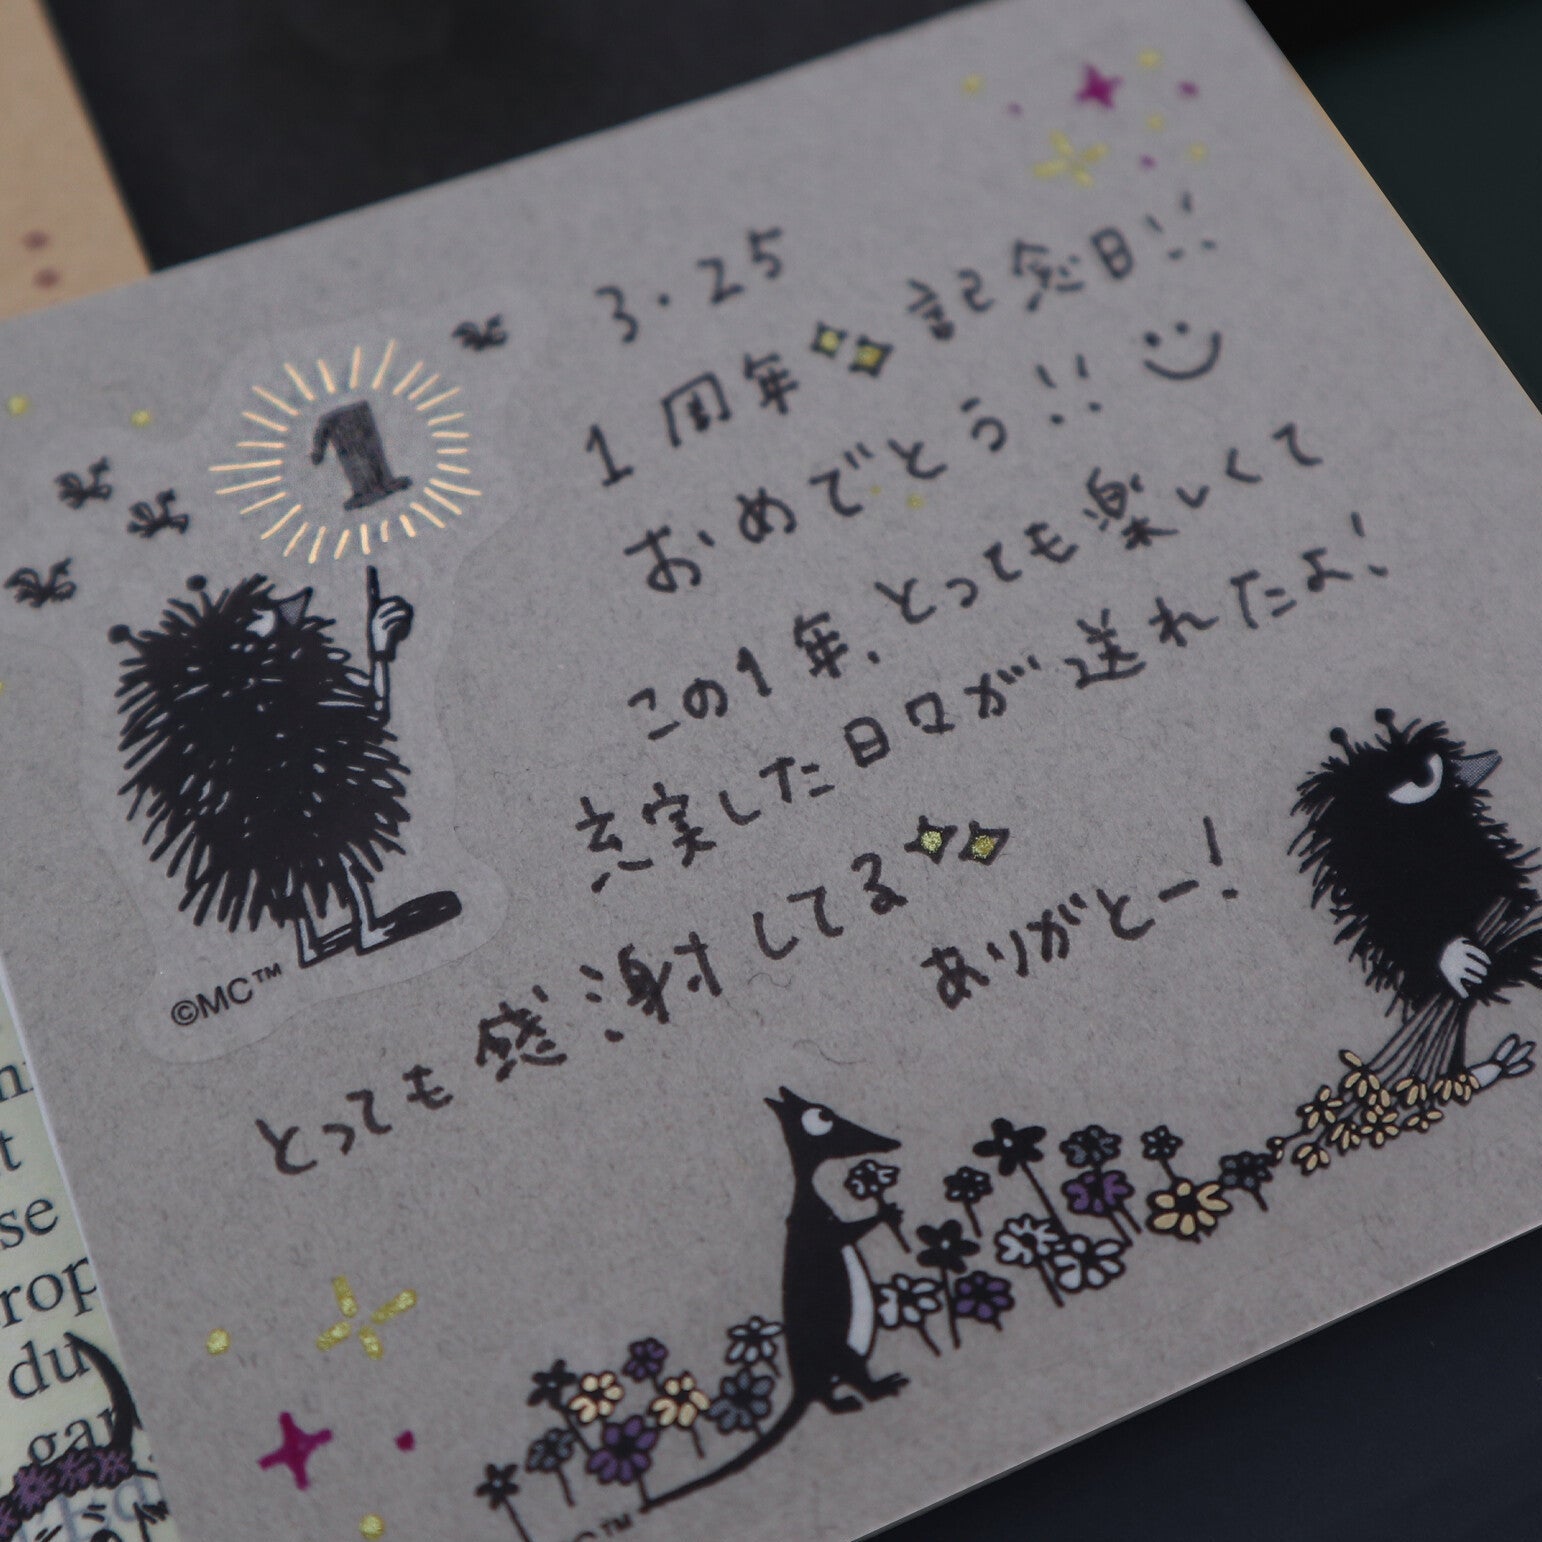 3.25
1周年 記念日!!
おめでとう!!
この1年、とっても楽しくて
充実した日々が送れたよ!
とっても感謝してる
ありがとー!
1
©MC™
™
t
se
rop
du
gar